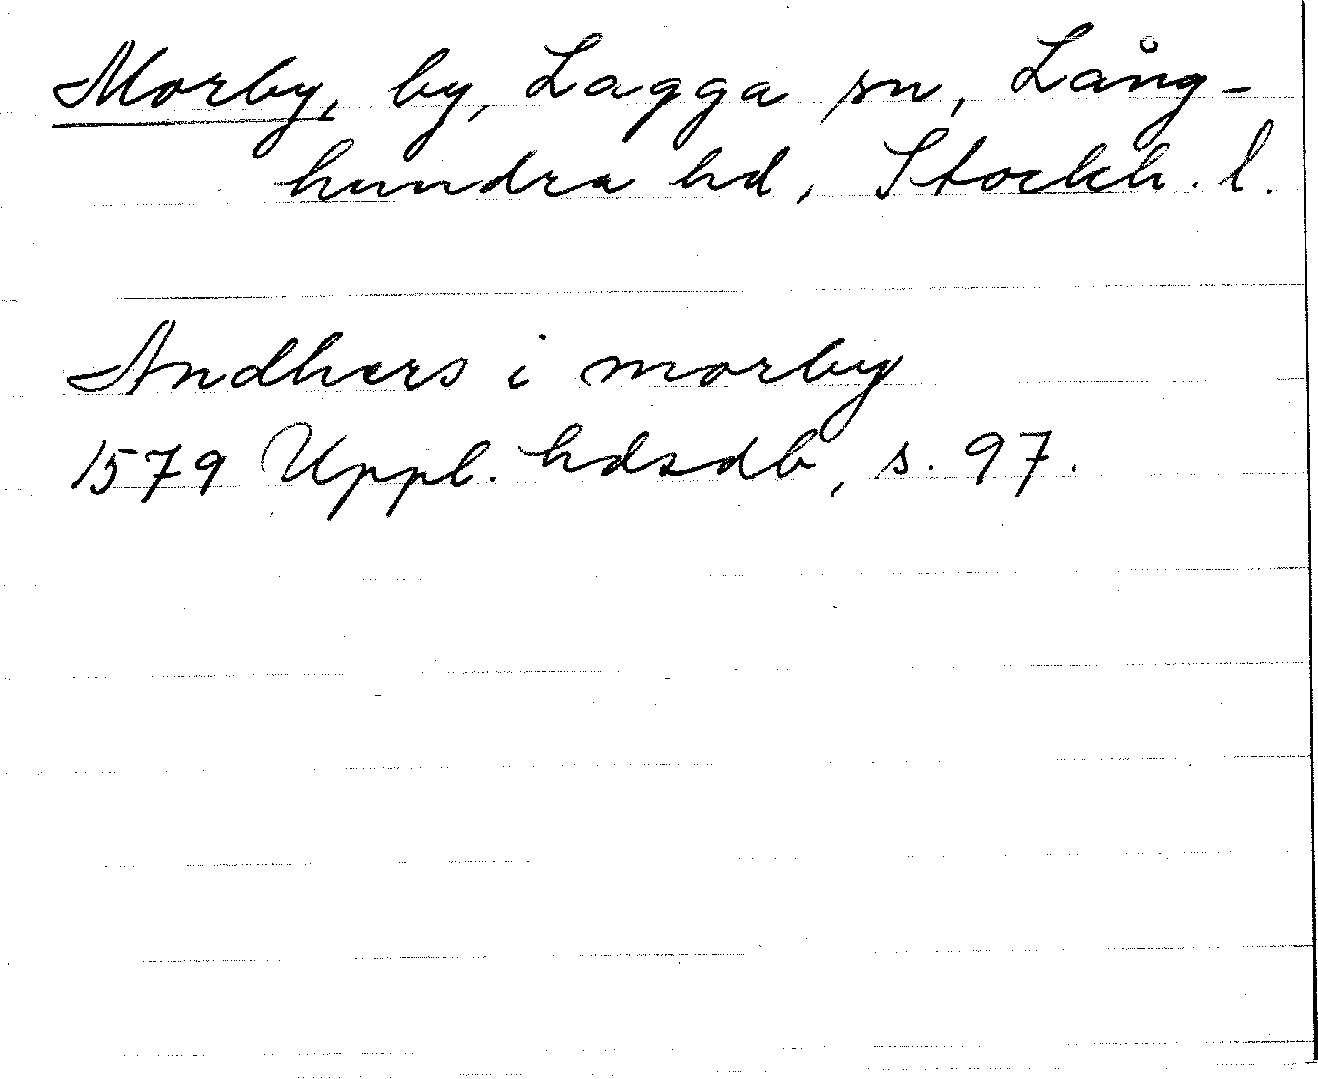 Morby, by, Lagga sn, Lång-
hundra hd, Stockh. l.
Andhers i morby
1579 Uppl. hdsdb, s. 97.